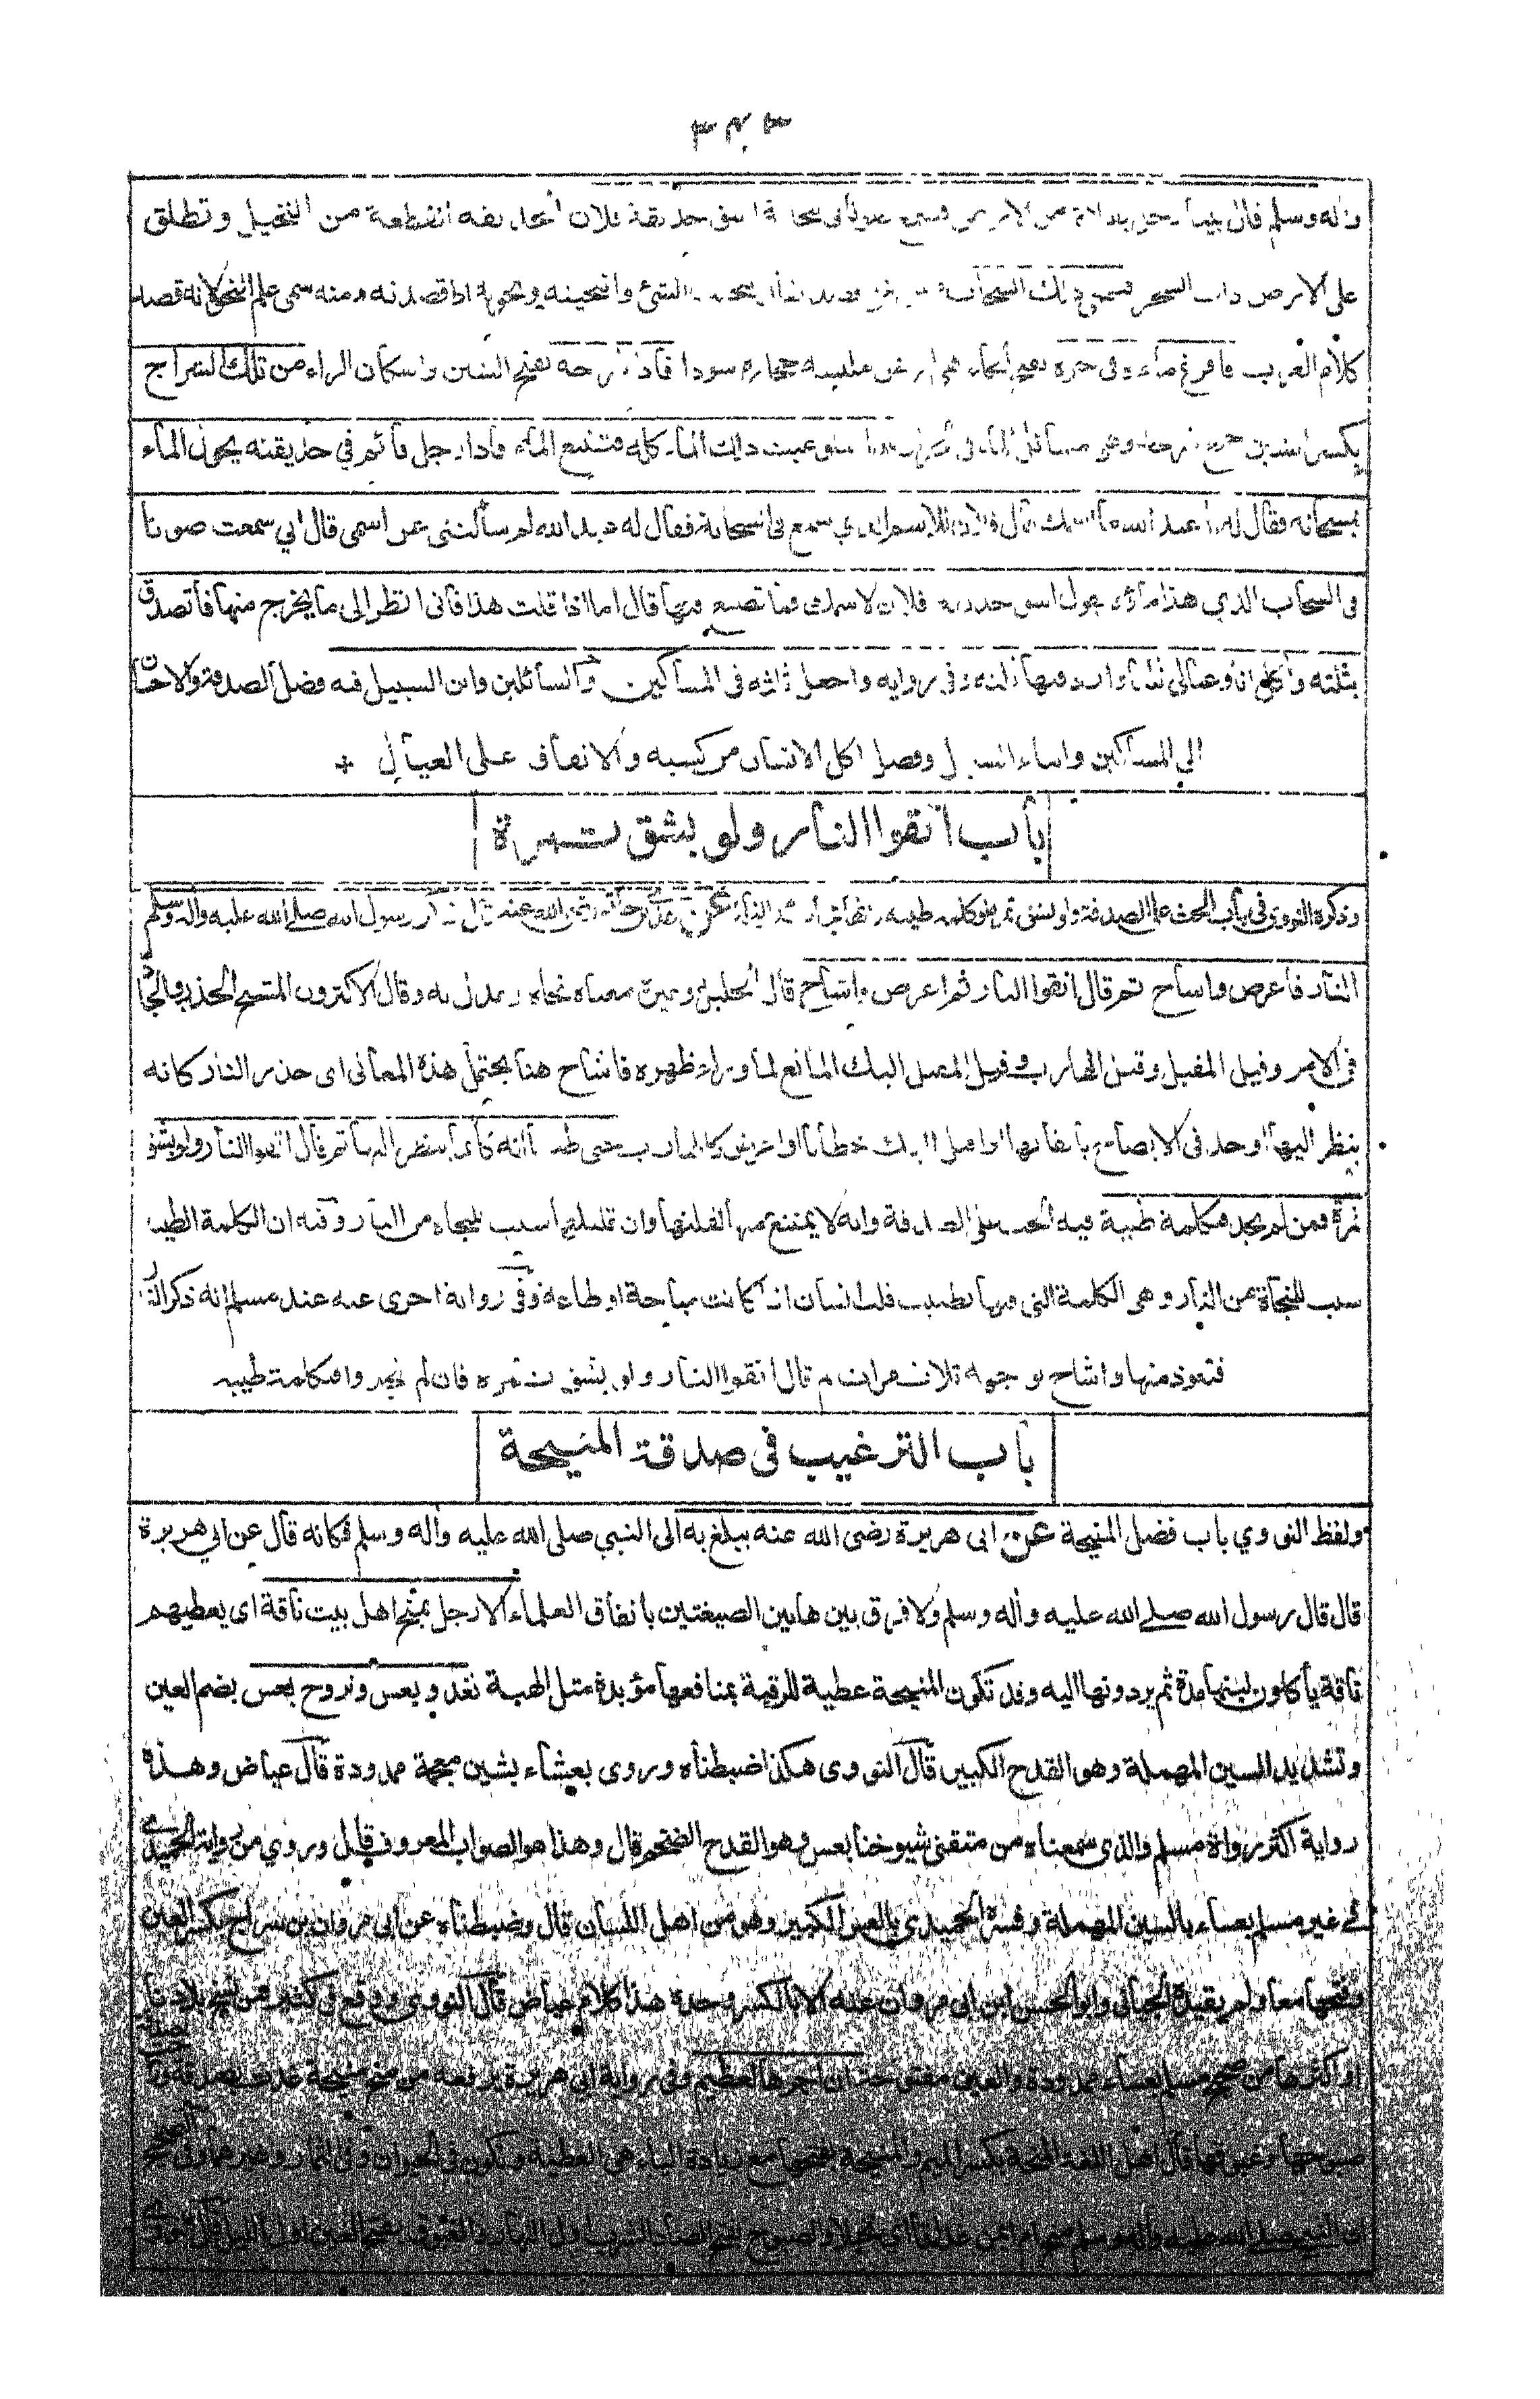 ٣٤٣
وأله وسلم قال بينا رجل بفلاة من الارض فسمع صوتا في سحابة اسق حديقة فلان الحديقة القطعة من النخيل وتطلق
على الارض ذات الشجر فتنحى ذلك السحاب الشئ وانتحيته ونحوته اذا قصدته ومنه سمى علم النحو لانه قصد
كلام العرب فافرغ ماءه في حرة سودا فاذا شرجة بفتح الشين واسكان الراء من تلك الشراج
بكسر الشين وهي مسائل الماء في قد استوعبت ذلك الماء كله فتتبع الماء فاذا رجل قائم في حديقته يحول الماء
بمسحاته فقال له يا عبد الله ما اسمك قال فلان للاسم الذي سمع في السحابة فقال له يا عبد الله لم سألتني عن اسمي قال اني سمعت صوتا
في السحاب الذي هذا ماؤه يقول اسق حديقة فلان لاسمك فما تصنع فيها قال اما اذا قلت هذا فاني انظر الى ما يخرج منها فأتصدق
بثلثه وأكل انا وعيالي ثلثا وارد فيها ثلثه وفي رواية واجعل ثلثه في المساكين والسائلين وابن السبيل فيه فضل الصدقة والاحسان
الى المساكين وابناء السبيل وفضل اكل الانسان من كسبه والانفاق على العيال +
باب اتقوا النار ولو بشق تمرة
وذكره النووي في باب الحث على الصدقة ولو بشق تمرة او كلمة طيبة عن عدي بن حاتم رضي الله عنه قال ذكر رسول الله صلى الله عليه وأله وسلم
النار فاعرض واشاح ثم قال اتقوا النار ثم اعرض واشاح قال الخليل وغيره معناه نحاه وعدل به وقال الاكثرون المشيح الحذر والجاد
في الامر وقيل المقبل وقيل الهارب وقيل المقبل اليك المانع لما وراء ظهره فاشاح هنا يحتمل هذه المعاني اى حذر النار كانه
ينظر اليها او جد في الايصاء باتقائها او اقبل اليك خطابا او اعرض كالهارب حتى ظننا انه كانما ينظر اليها ثم قال اتقوا النار ولو بشق
تمرة فمن لم يجد فبكلمة طيبة فيه الحث على الصدقة وانه لا يمتنع منها لقلتها وان قليلها سبب للنجاة من النار وفيه ان الكلمة الطيبة
سبب للنجاة من النار وهي الكلمة التي فيها تطييب قلب انسان اذا كانت مباحة او طاعة وفي رواية اخرى عنه عند مسلم انه ذكر النار
فتعوذ منها واشاح بوجهه ثلاث مرات ثم قال اتقوا النار ولو بشق تمرة فان لم تجدوا فبكلمة طيبة
باب الترغيب في صدقة المنيحة
ولفظ النووي باب فضل المنيحة عن ابى هريرة رضى الله عنه يبلغ به الى النبي صلى الله عليه وأله وسلم فكانه قال عن ابي هريرة
قال قال رسول الله صلى الله عليه وأله وسلم ولا فرق بين هاتين الصيغتين باتفاق العلماء الا رجل يمنح اهل بيت ناقة اى يعطيهم
ناقة يأكلون لبنها مدة ثم يردونها اليه وقد تكون المنيحة عطية للرقبة بمنافعها مؤبدة مثل الهبة تغدو بعس وتروح بعس بضم العين
وتشديد السين المهملة وهو القدح الكبير قال النووى هكذا ضبطناه وروى بعشاء بشين معجمة ممدودة قال عياض وهذه
رواية اكثر رواة مسلم والذى سمعناه من متقنى شيوخنا بعس وهو القدح الضخم قال وهذا هو الصواب المعروف قال وروي من رواية الحميدي
في غير مسلم بعساء بالسين المهملة وفسره الحميدي بالعس الكبير وهو من اهل اللسان قال وضبطناه عن ابى مروان بن سراج بكسر العين
وفتحها معا ولم يقيده الجياني وابو الحسن ابن ابى مروان عنه الا بالكسر وحده هذا كلام عياض قال النووى ووقع في كثير من نسخ بلادنا
او اكثرها من صحيح مسلم بعساء ممدودة والعين مفتوحة ان اجرها لعظيم وفي رواية ابي هريرة يرفعه من منح منيحة غدت بصدقة وراحت بصدقة
صبوحها وغبوقها قال اهل اللغة المنحة بكسر الميم والمنيحة بفتحها مع زيادة الياء هي العطية وتكون في الحيوان وفي الثمار وغيرهما وفي الصحيح
ان النبي صلى الله عليه وأله وسلم